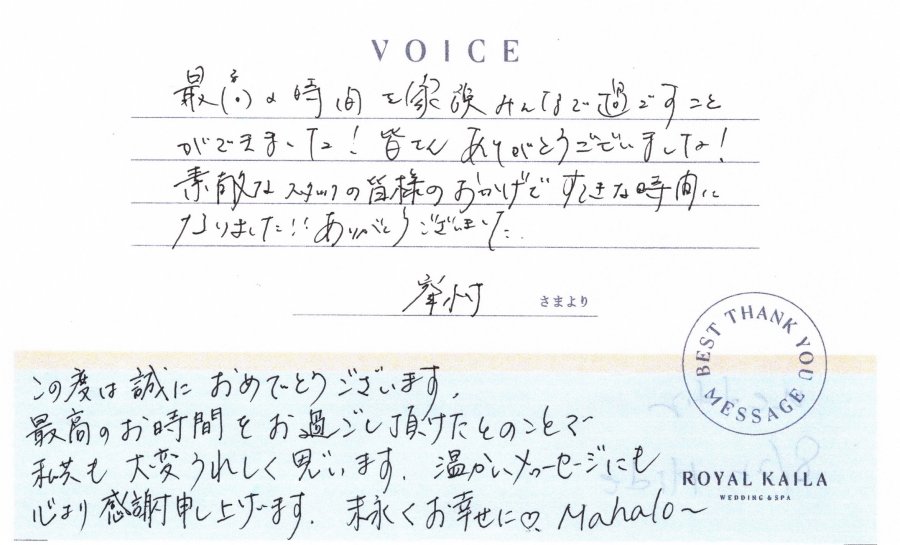 VOICE
最高の時間を家族みんなで過ごすこと
ができました！皆さんありがとうございました！
素敵なスタッフの皆様のおかげですてきな時間に
なりました!!ありがとうございました
さまより
BEST THANK YOU MESSAGE
この度は誠におめでとうございます。
最高のお時間をお過ごし頂けたとのことで
私共も大変うれしく思います。温かいメッセージにも
心より感謝申し上げます。末永くお幸せに♡ Mahalo~
ROYAL KAILA
WEDDING & SPA